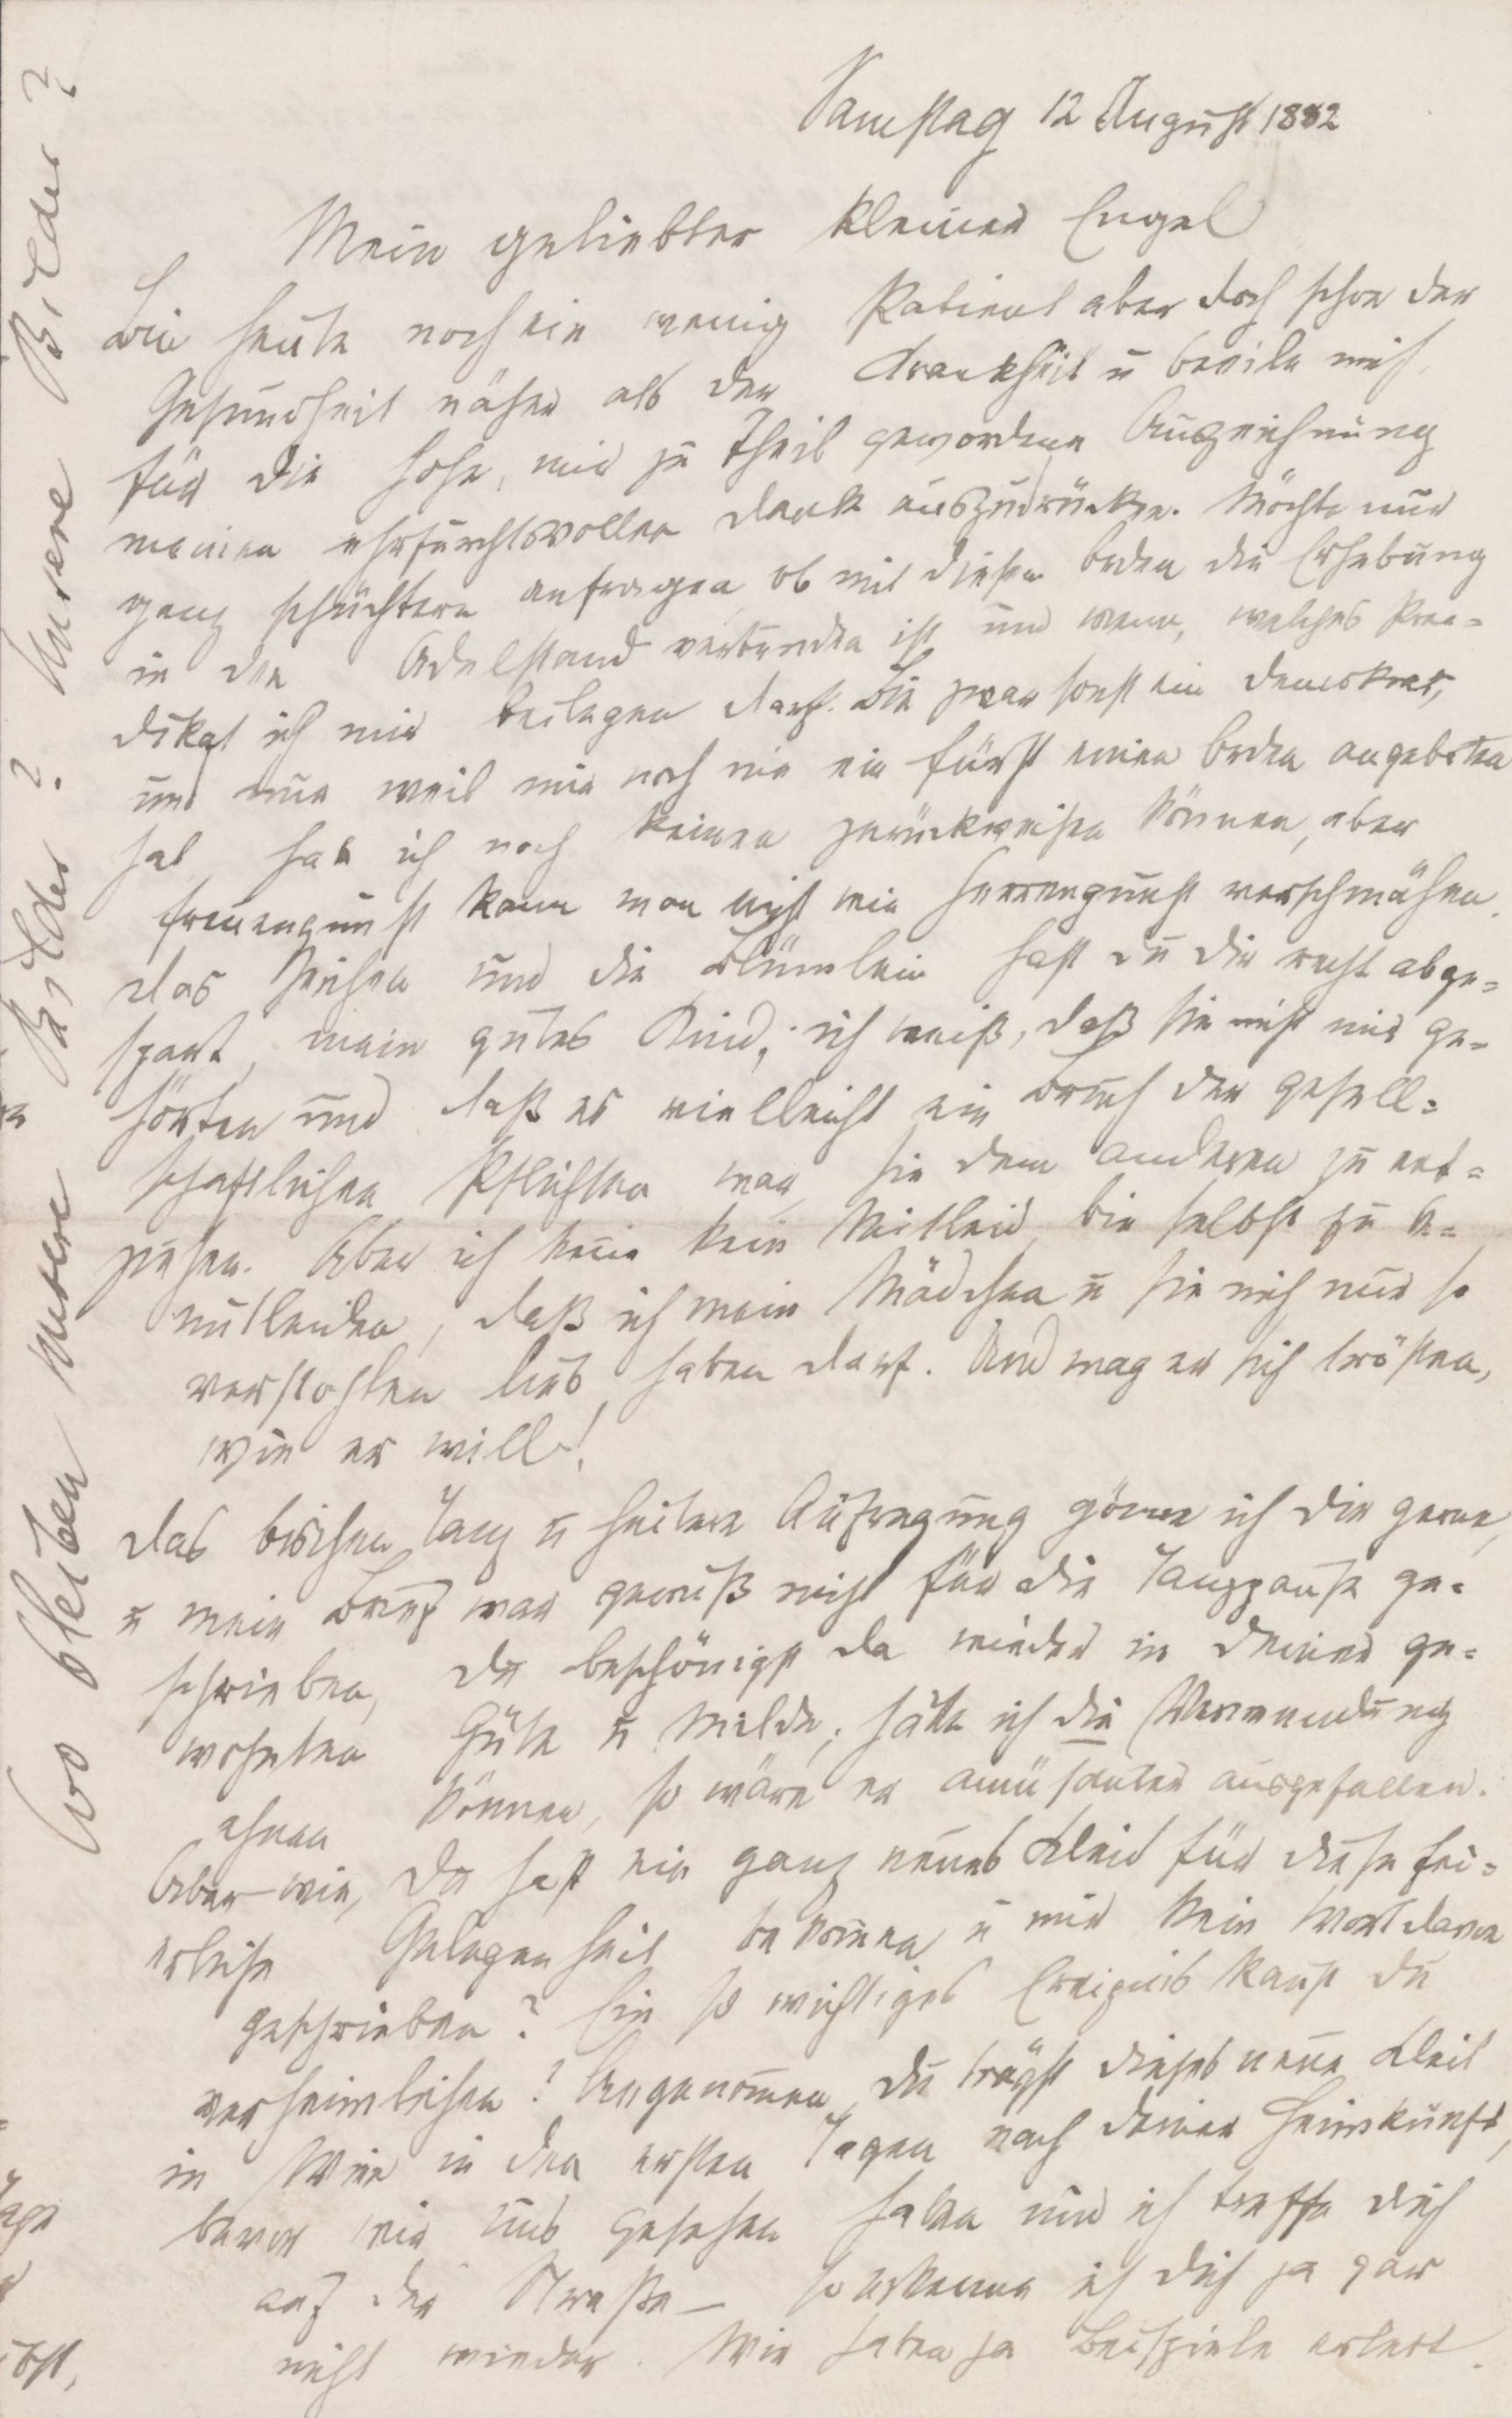 Samstag 12 August 1882
Mein geliebter kleiner Engel
Bin heute noch ein wenig Patient aber doch schon der
Gesundheit näher als der Krankheit u beeile mich,
für die hohe, mir zu Theil gewordene Auszeichnung
meinen ehrfurchtsvollen Dank auszudrücken. Möchte nur
ganz schüchtern anfragen ob mit diesem Orden die Erhebung
in den Adelstand verbunden ist und wenn, welches Prae-
dikat ich mir beilegen darf. Bin zwar sonst ein Demokrat,
und nur weil mir noch nie ein Fürst einen Orden angeboten
hat hab ich noch keinen zurückweisen können, aber
Frauengunst kann man nicht wie Herrengunst verschmähen.
Das Zeichen und die Blümlein hast du dir recht abge-
spart, mein gutes Kind; ich weiß, daß sie nicht mir ge-
hörten und daß es vielleicht ein Bruch der gesell-
schaftlichen Pflichten war, sie dem anderen zu ent-
ziehen. Aber ich kenne kein Mitleid, bin selbst zu be-
mitleiden, daß ich mein Mädchen u sie mich nur so
verstohlen lieb haben darf. Und mag er sich trösten,
wie er will!
Das bischen Tanz u heitere Aufregung gönne ich dir gerne,
u mein Brief war gewiß nicht für die Tanzpause ge-
schrieben, du beschönigst da wieder in deiner ge-
wohnten Güte u Milde; hätte ich die Verwendung
ahnen können, so wäre er amüsanter ausgefallen.
Aber wie, du hast ein ganz neues Kleid für diese fei-
erliche Gelegenheit bekommen u mir kein Wort davon
geschrieben? Ein so wichtiges Ereignis kannst du
verheimlichen? Angenommen, du trägst dieses neue Kleid
in Wien in den ersten Tagen nach deiner Heimkunft,
bevor wir uns gesehen haben und ich treffe dich
auf der Straße – so erkenne ich dich ja gar
nicht wieder. Wir haben ja Beispiele erlebt.
Wo bleiben unsere Bilder? Unsere Bilder?